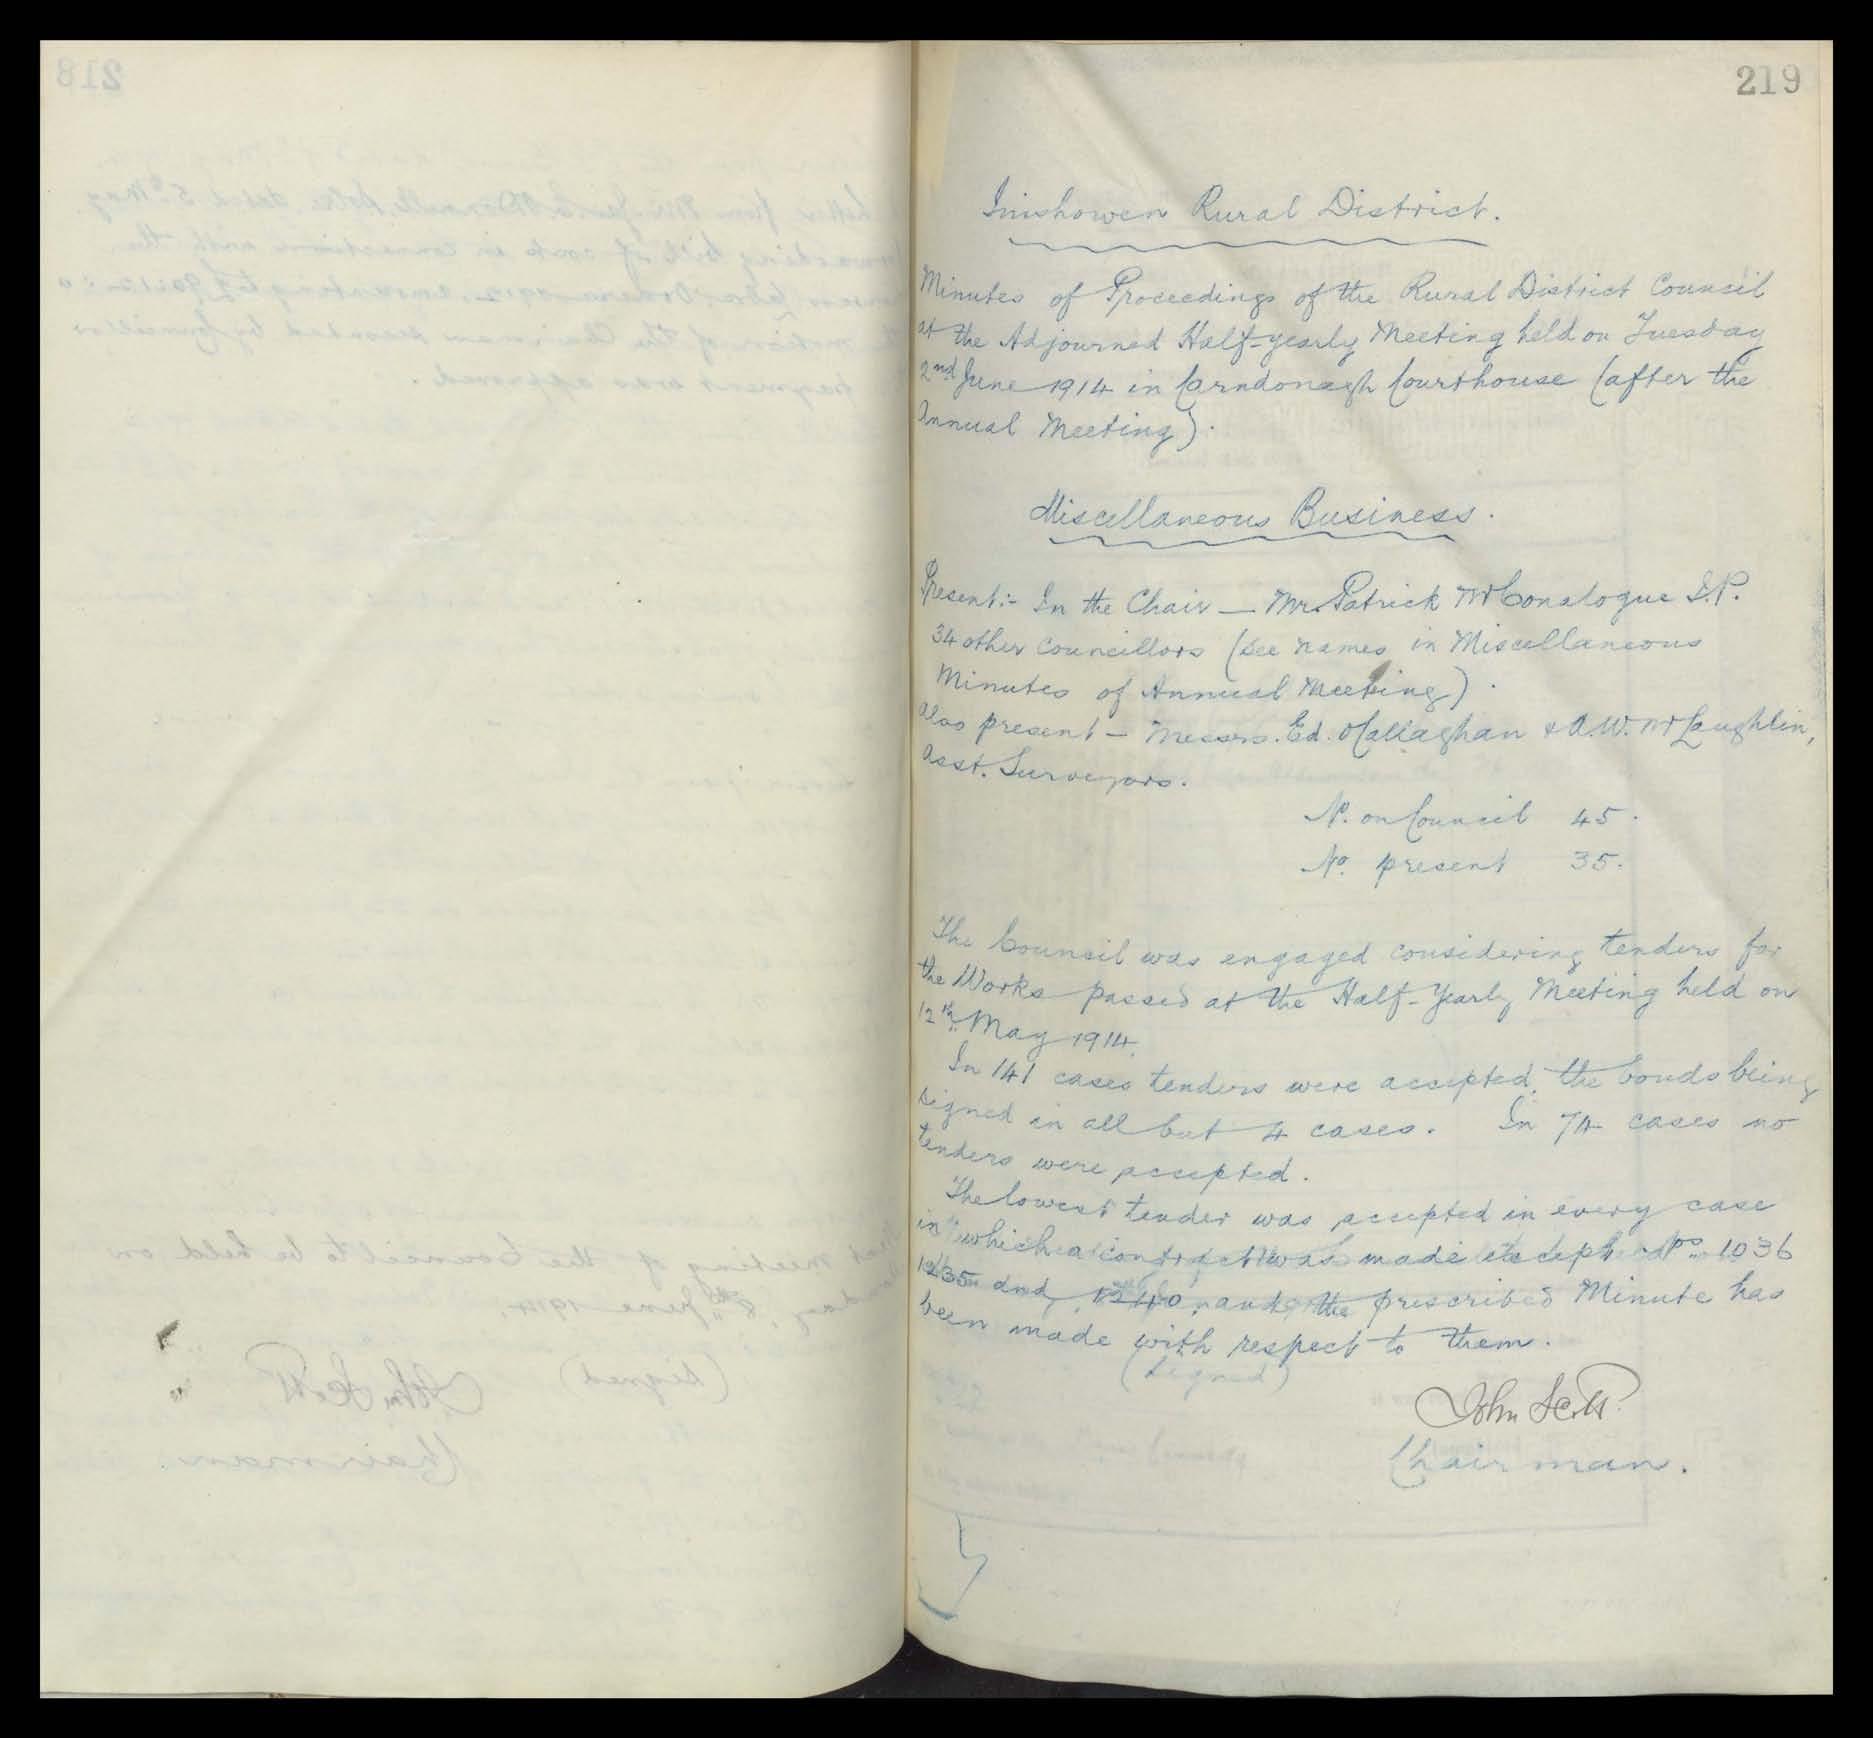 219
Inishowen Rural District.
Minutes of Proceedings of the Rural District Council
at the Adjourned Half-yearly Meeting held on Tuesday
2nd June 1914 in Carndonagh Courthouse (after the
Annual Meeting).
Miscellaneous Business.
Present:- In the Chair — Mr. Patrick McConalogue J.P.
34 other Councillors (see names in Miscellaneous
Minutes of Annual Meeting).
Also present — Messrs. Ed. O'Callaghan & A.W. McLaughlin,
Asst. Surveyors.
No. on Council 45.
No. present 35.
The Council was engaged considering tenders for
the Works passed at the Half-Yearly Meeting held on
12th May 1914.
In 141 cases tenders were accepted, the bonds being
signed in all but 4 cases. In 74 cases no
tenders were accepted.
The lowest tender was accepted in every case
in which a contract was made except Nos. 1036
1235 and 1240, and the prescribed Minute has
been made with respect to them.
(Signed)
John Scott
Chairman.